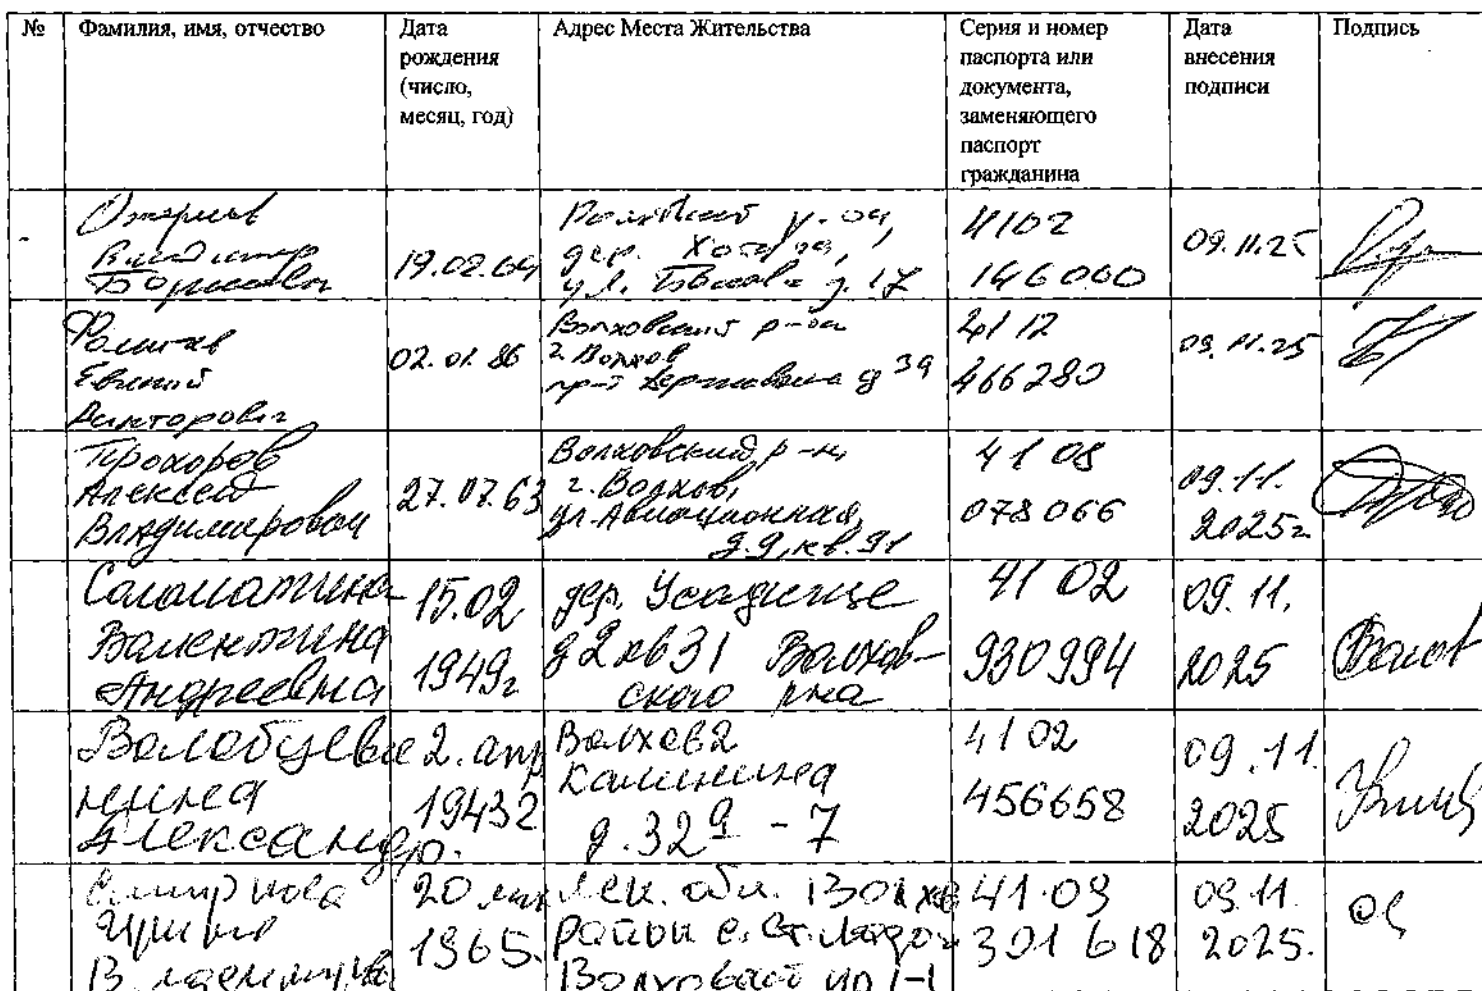 №
Фамилия, имя, отчество
Дата
рождения
(число,
месяц, год)
Адрес Места Жительства
Серия и номер
паспорта или
документа,
заменяющего
паспорт
гражданина
Дата
внесения
подписи
Подпись
Борисович
19.02.69
дер.
ул. д. 17
4102
146000
09.11.25
Евгений
Викторович
02.01.86
Волховский р-он
г. Волхов
пр-т Державина д 39
4112
466280
09.11.25
Прохоров
Алексей
Владимирович
27.07.63
Волховский р-н,
г. Волхов,
ул. Авиационная,
д.9, кв.91
41 08
078066
09.11.
2025г
Саломатина
Валентина
Андреевна
15.02
1949г
дер. Усадище
д2 кв31 Волхов-
ского рна
41 02
930994
09.11.
2025
Нина
Александр.
2. апр
1943г
Волхов г
Калинина
д. 32а - 7
41 02
456658
09.11.
2025
Смирнова
Ирина
20
1965.
Лен. обл. Волхв
район с. Ст. Ладо
41.09
301 618
09.11.
2025.